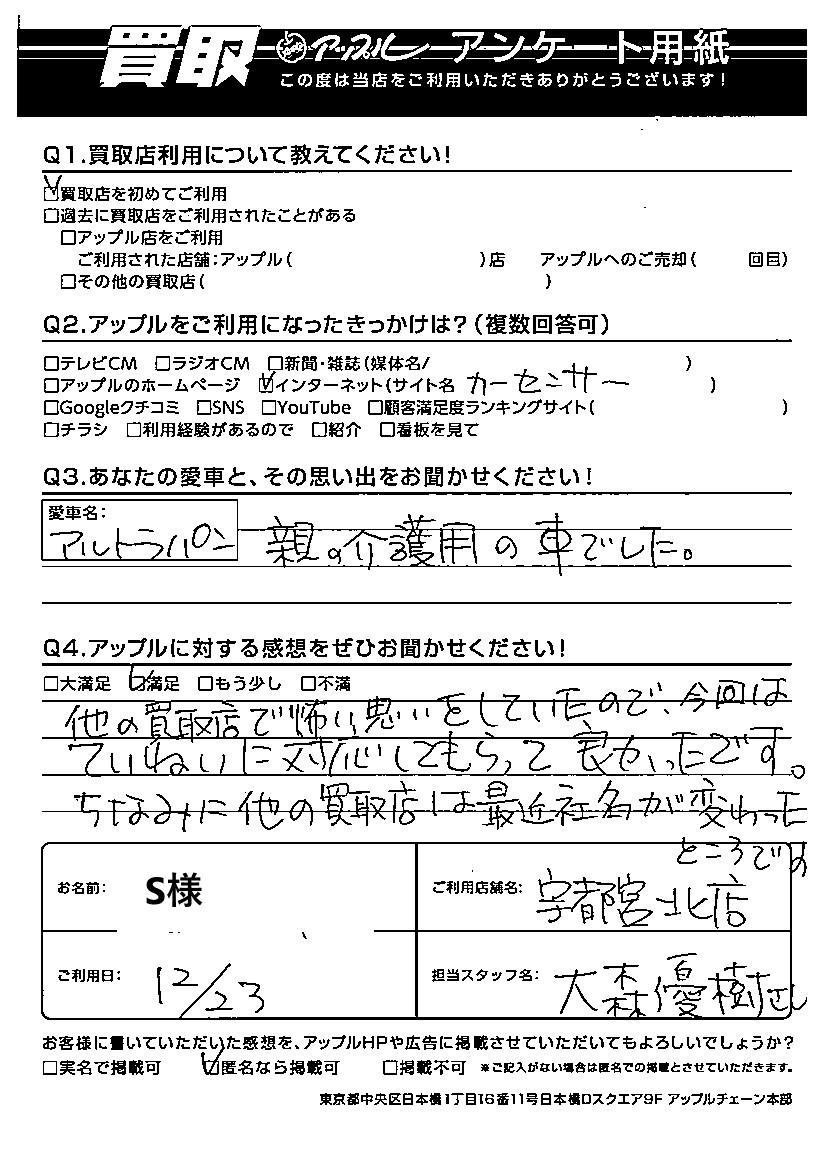 買取 アップル アンケート用紙
この度は当店をご利用いただきありがとうございます！
Q1.買取店利用について教えてください！
☑買取店を初めてご利用
□過去に買取店をご利用されたことがある
□アップル店をご利用
ご利用された店舗：アップル（ ）店 アップルへのご売却（ 回目）
□その他の買取店（ ）
Q2.アップルをご利用になったきっかけは？（複数回答可）
□テレビCM □ラジオCM □新聞・雑誌（媒体名/ ）
□アップルのホームページ ☑インターネット（サイト名 カーセンサー ）
□Googleクチコミ □SNS □YouTube □顧客満足度ランキングサイト（ ）
□チラシ □利用経験があるので □紹介 □看板を見て
Q3.あなたの愛車と、その思い出をお聞かせください！
愛車名：
アルトラパン 親の介護用の車でした。
Q4.アップルに対する感想をぜひお聞かせください！
□大満足 ☑満足 □もう少し □不満
他の買取店で怖い思いをしていたので、今回は
ていねいに対応してもらって良かったです。
ちなみに他の買取店は最近社名が変わった
ところです
お名前： S様 ご利用店舗名： 宇都宮北店
ご利用日： 12/23 担当スタッフ名： 大森優樹さん
お客様に書いていただいた感想を、アップルHPや広告に掲載させていただいてもよろしいでしょうか？
□実名で掲載可 ☑匿名なら掲載可 □掲載不可 ※ご記入がない場合は匿名での掲載とさせていただきます。
東京都中央区日本橋1丁目16番11号日本橋Dスクエア9F アップルチェーン本部